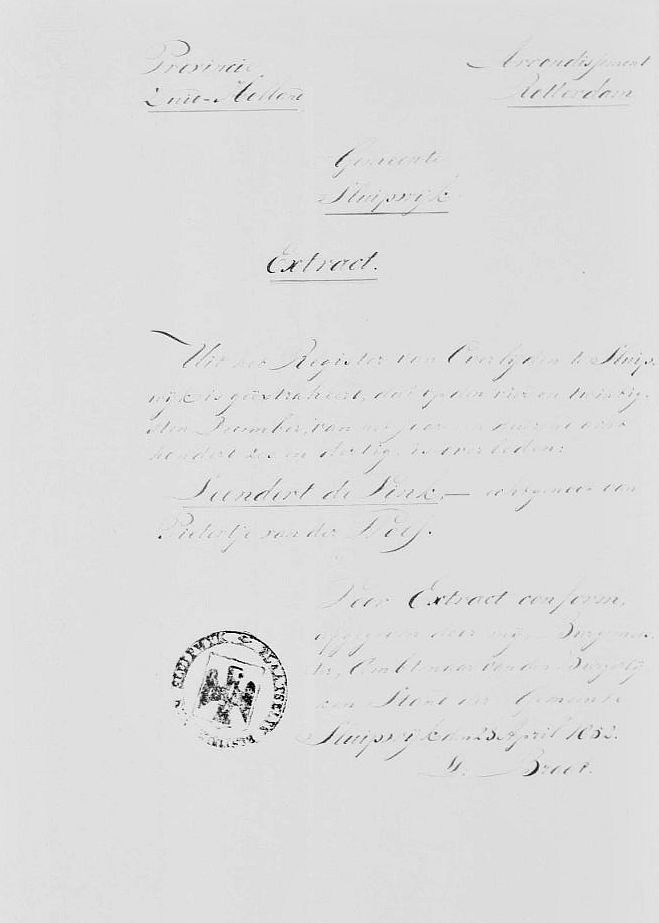 Provincie
Zuid-Holland
Arrondissement
Rotterdam
Gemeente
Sluipwijk
Extract.
Uit het Register van Overlijden te Sluip-
wijk is geëxtraheert, dat op den vier en twintig-
sten December, van het jaar een duizend acht
hondert zes en dertig, is overleden:
Leendert de Vink, — echtgenoot van
Pietertje van der Wolf.
Voor Extract conform,
afgegeven door mij, Burgemees-
ter, Ambtenaar van den Burgerlij-
ken Stand der Gemeente
Sluipwijk den 23 April 1852.
Broer.
PLAATSELYK BESTUUR SLUIPWYK